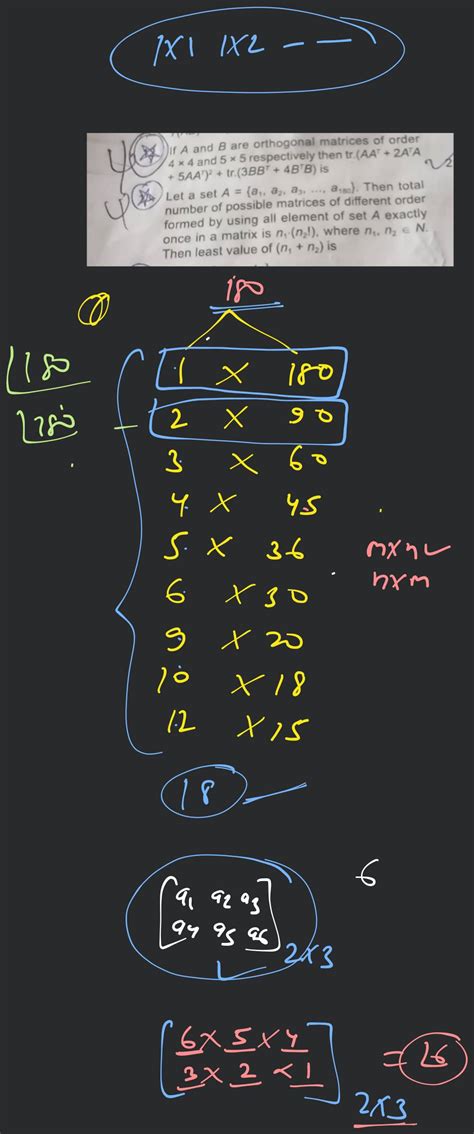 1x1 1x2 - - -
If A and B are orthogonal matrices of order
4 × 4 and 5 × 5 respectively then tr.(AAᵀ + 2AᵀA
+ 5AAᵀ)² + tr.(3BBᵀ + 4BᵀB) is
Let a set A = {a₁, a₂, a₃, ..., a₁₈₀}. Then total
number of possible matrices of different order
formed by using all element of set A exactly
once in a matrix is n₁·(n₂!), where n₁, n₂ ∈ N.
Then least value of (n₁ + n₂) is
180
1 x 180
2 x 90
3 x 60
4 x 45
5 x 36
6 x 30
9 x 20
10 x 18
12 x 15
180
180
m x n
n x m
18
6
a₁ a₂ a₃
a₄ a₅ a₆
2x3
6 x 5 x 4
3 x 2 x 1
=
2x3